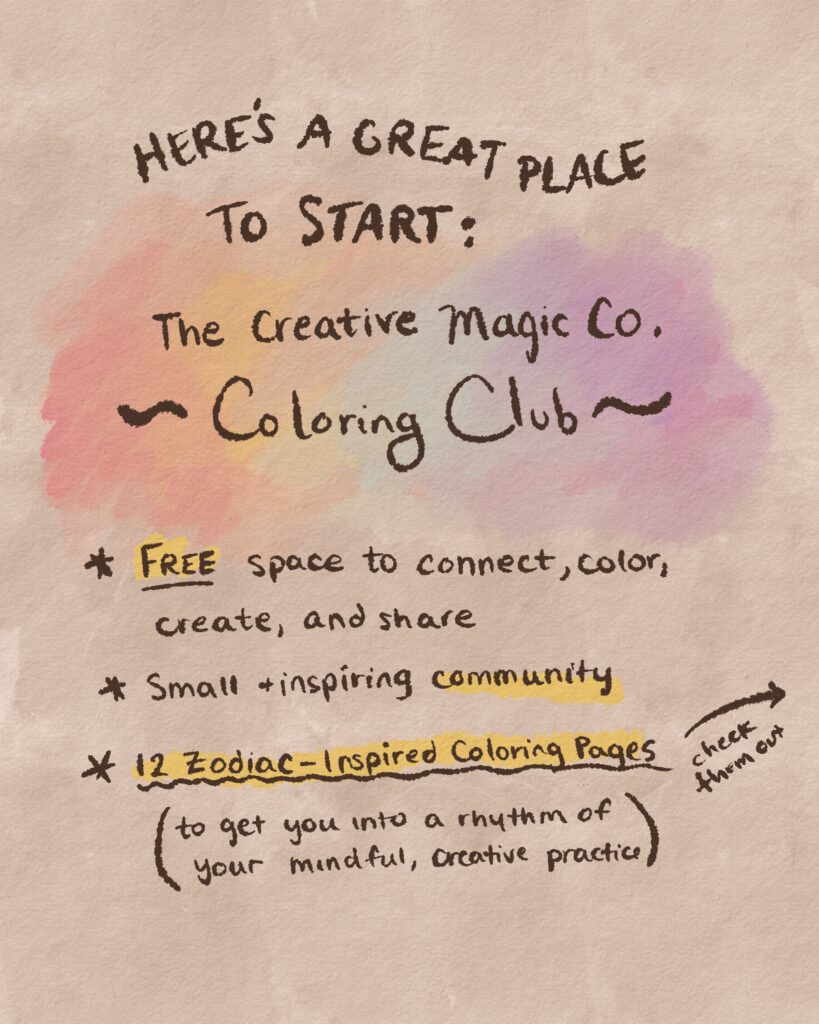 HERE'S A GREAT PLACE
TO START:
The Creative Magic Co.
~ Coloring Club ~
* FREE space to connect, color,
create, and share
* Small + inspiring community
* 12 Zodiac-Inspired Coloring Pages
check
them out
(to get you into a rhythm of
your mindful, creative practice)